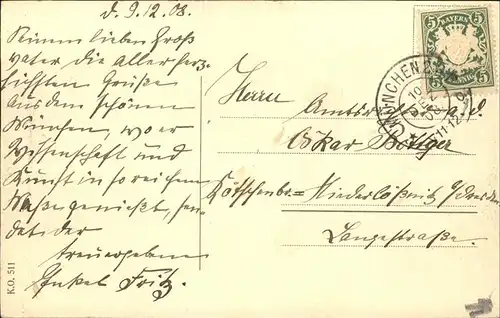 d. 9.12.08.
Seinem lieben Groß
vater die allerherz
lichsten Grüße
aus dem schönen
München, wo er
Wissenschaft und
Kunst in so reichem
Maße genießt, sen-
det der
treuergebene
Enkel Fritz.
K.O. 511
BAYERN
5 5
MÜNCHEN
10
DEZ
08
11-12
Herrn
Amtsrat a. d.
Oskar Böttger
Kötzschenbr.= Niederlößnitz b/Dresden
Langestraße.